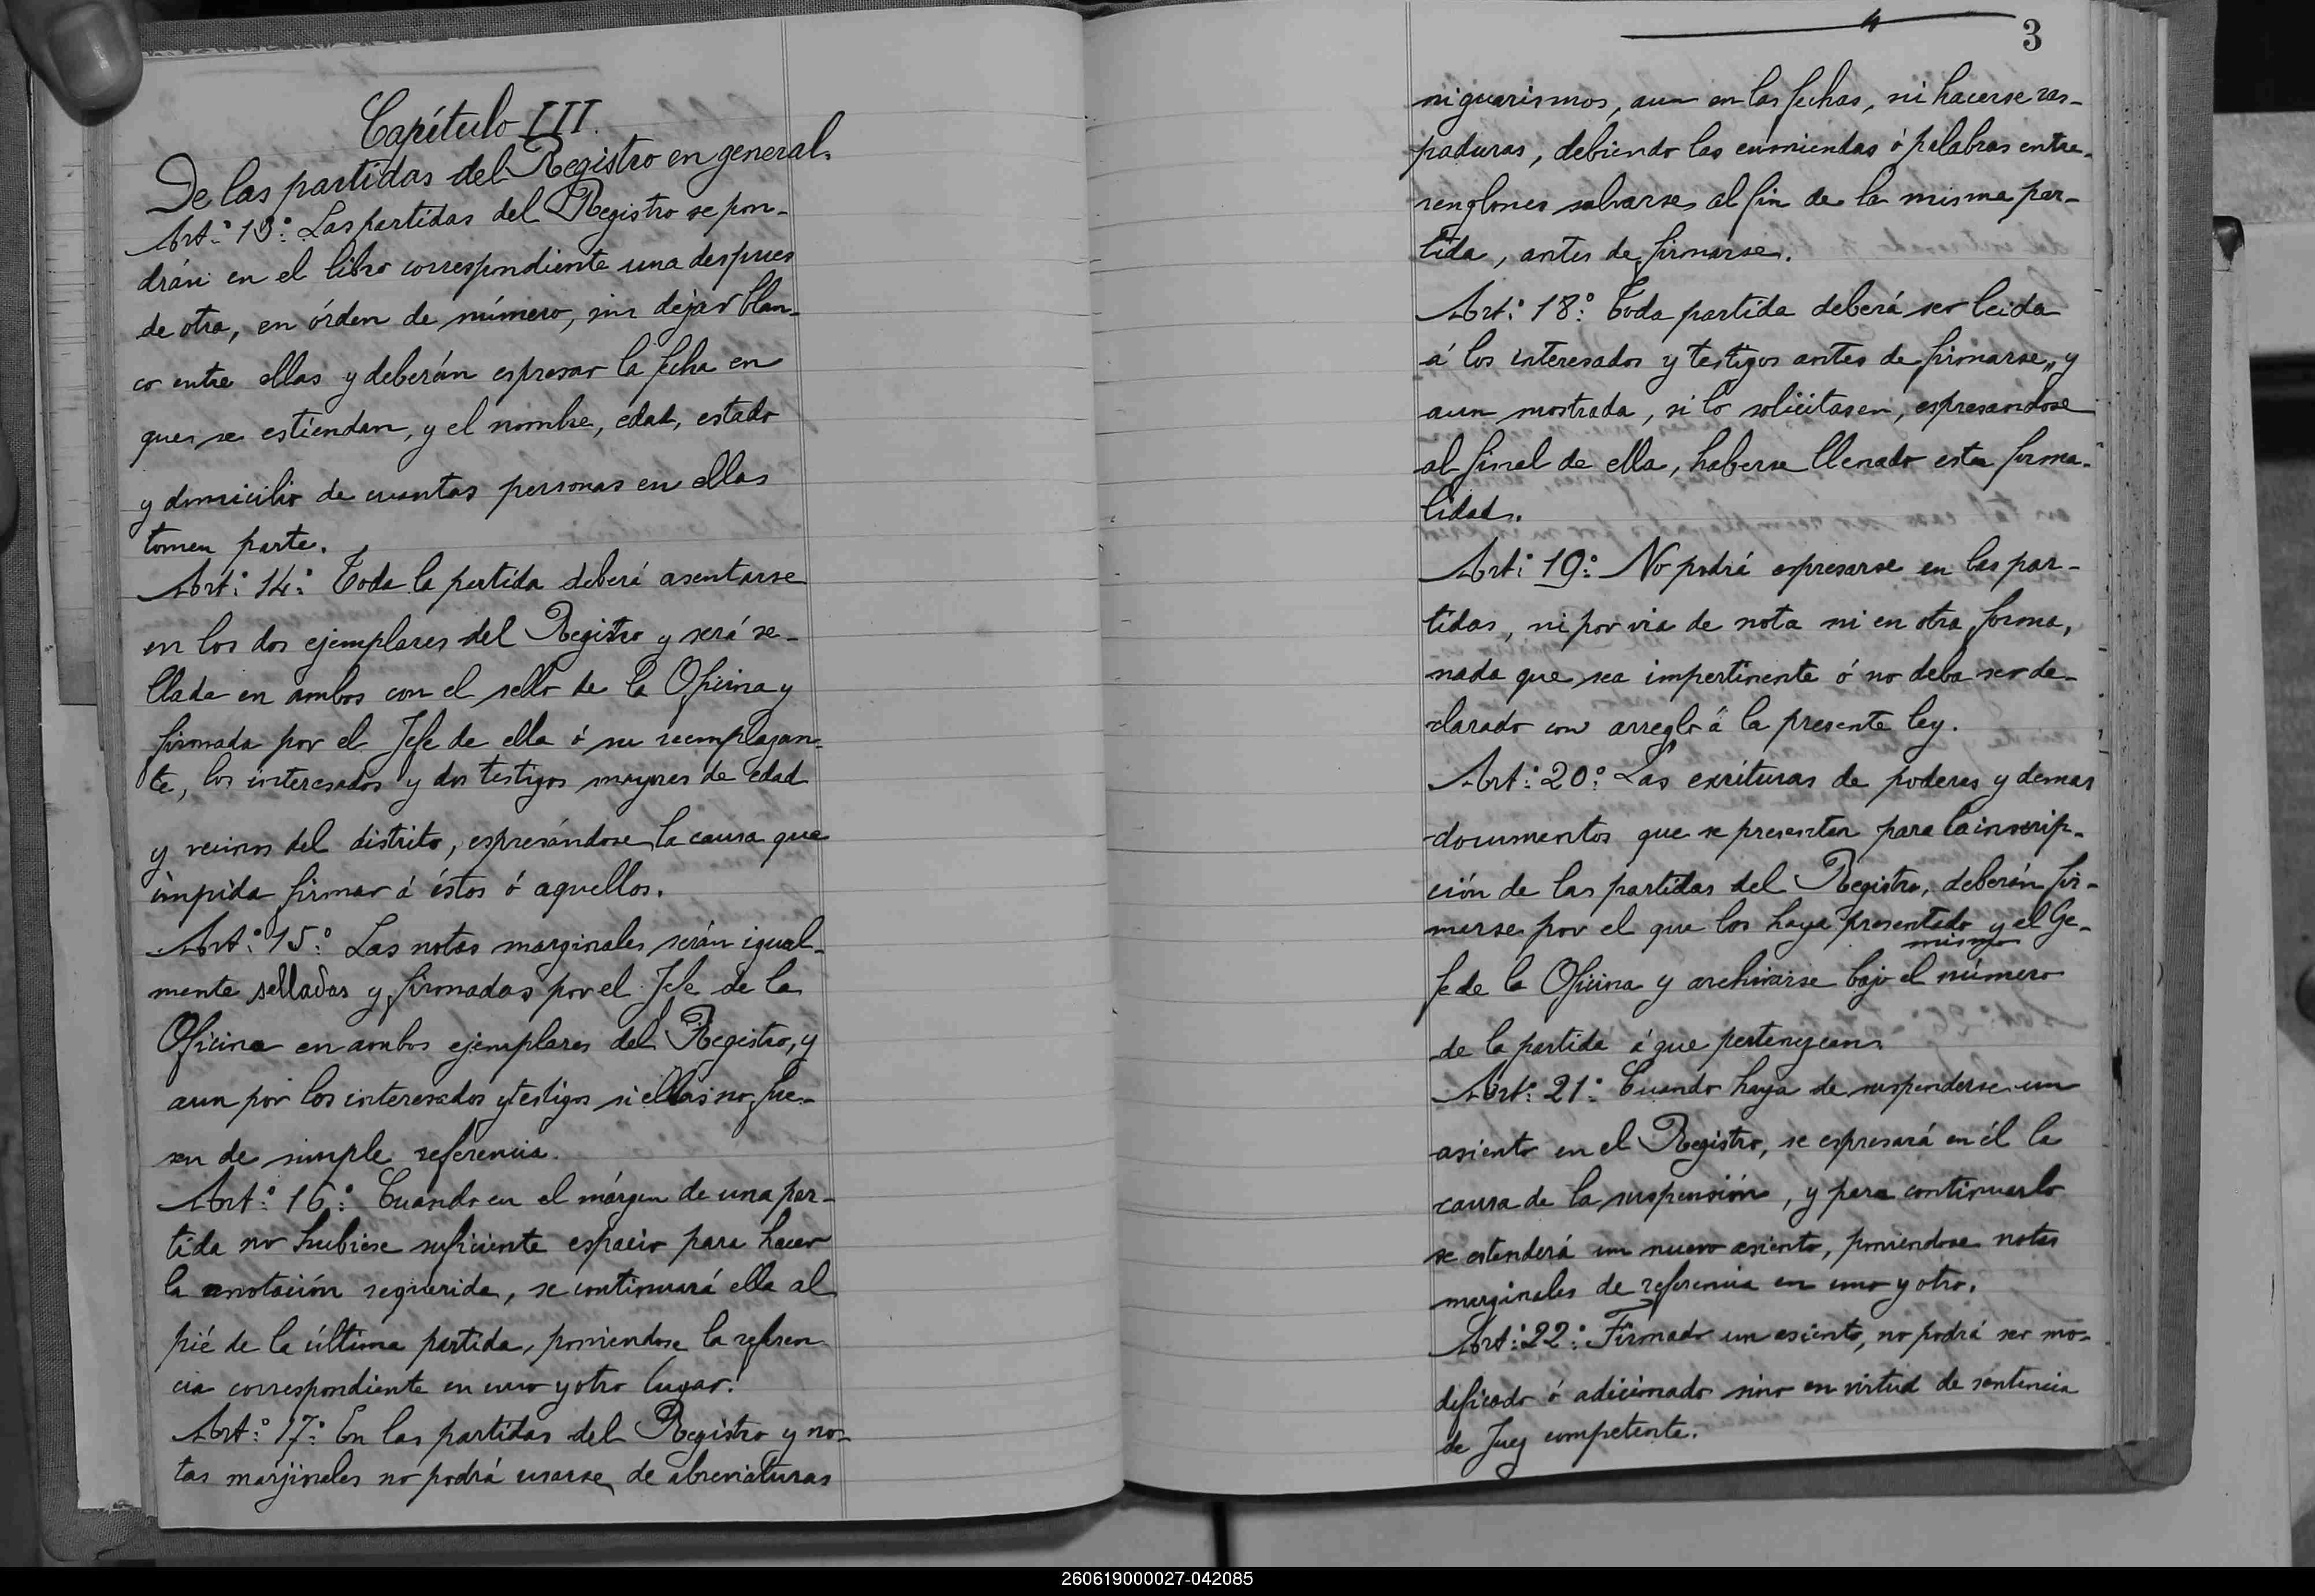 Capítulo III.
De las partidas del Registro en general.
Art.º 13.º Las partidas del Registro se pon-
drán en el libro correspondiente una despues
de otra, en órden de número, sin dejar blan-
co entre ellas y deberán espresar la fecha en
que se estiendan, y el nombre, edad, estado
y domicilio de cuantas personas en ellas
tomen parte.
Art.º 14.º Toda la partida deberá asentarse
en los dos ejemplares del Registro y será se-
llada en ambos con el sello de la Oficina y
firmada por el Jefe de ella ó su reemplazan-
te, los interesados y dos testigos mayores de edad
y vecinos del distrito, espresándose la causa que
impida firmar á éstos ó aquellos.
Art.º 15.º Las notas marginales serán igual-
mente selladas y firmadas por el Jefe de la
Oficina en ambos ejemplares del Registro, y
aun por los interesados y testigos si ellas no fue-
sen de simple referencia.
Art.º 16.º Cuando en el márgen de una par-
tida no hubiese suficiente espacio para hacer
la anotación requerida, se continuará ella al
pié de la última partida, poniendose la referen
cia correspondiente en uno y otro lugar.
Art.º 17.º En las partidas del Registro y no-
tas marjinales no podrá usarse de abreviaturas
4
3
ni guarismos, aun en las fechas, ni hacerse ras-
paduras, debiendo las enmiendas ó palabras entre-
renglones salvarse al fin de la misma par-
tida, antes de firmarse.
Art.º 18.º Toda partida deberá ser leida
á los interesados y testigos antes de firmarse,, y
aun mostrada, si lo solicitasen, espresandose
al final de ella, haberse llenado esta forma-
lidad.
Art.º 19.º No podrá espresarse en las par-
tidas, ni por via de nota ni en otra forma,
nada que sea impertinente ó no deba ser de-
clarado con arreglo á la presente ley.
Art.º 20.º Las escrituras de poderes y demas
documentos que se presenten para la inscrip-
ción de las partidas del Registro, deberán fir-
marse por el que los haya presentado y el Ge-
mismo
fe de la Oficina y archivarse bajo el número
de la partida á que pertenezcan.
Art.º 21.º Cuando haya de suspenderse un
asiento en el Registro, se espresará en él la
causa de la suspensión, y para continuarlo
se estenderá un nuevo asiento, poniendose notas
marginales de referencia en uno y otro.
Art.º 22.º Firmado un asiento, no podrá ser mo-
dificado ó adicionado sino en virtud de sentencia
de Juez competente.
260619000027-042085